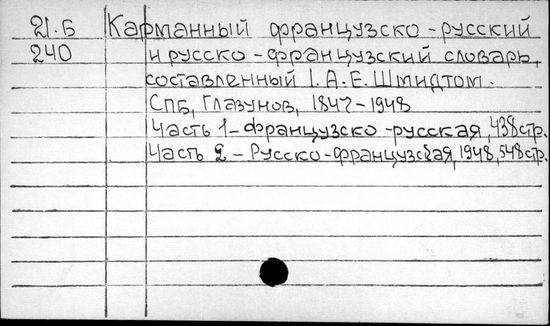 21.Б Карманный французско-русский
240 и русско-французский словарь,
составленный I.А.Е.Шмидтом.
СПБ, Глазунов, 1847-1948
Часть 1-Французско-русская, 438стр.
Часть 2-Русско-французская, 1948, 548стр.